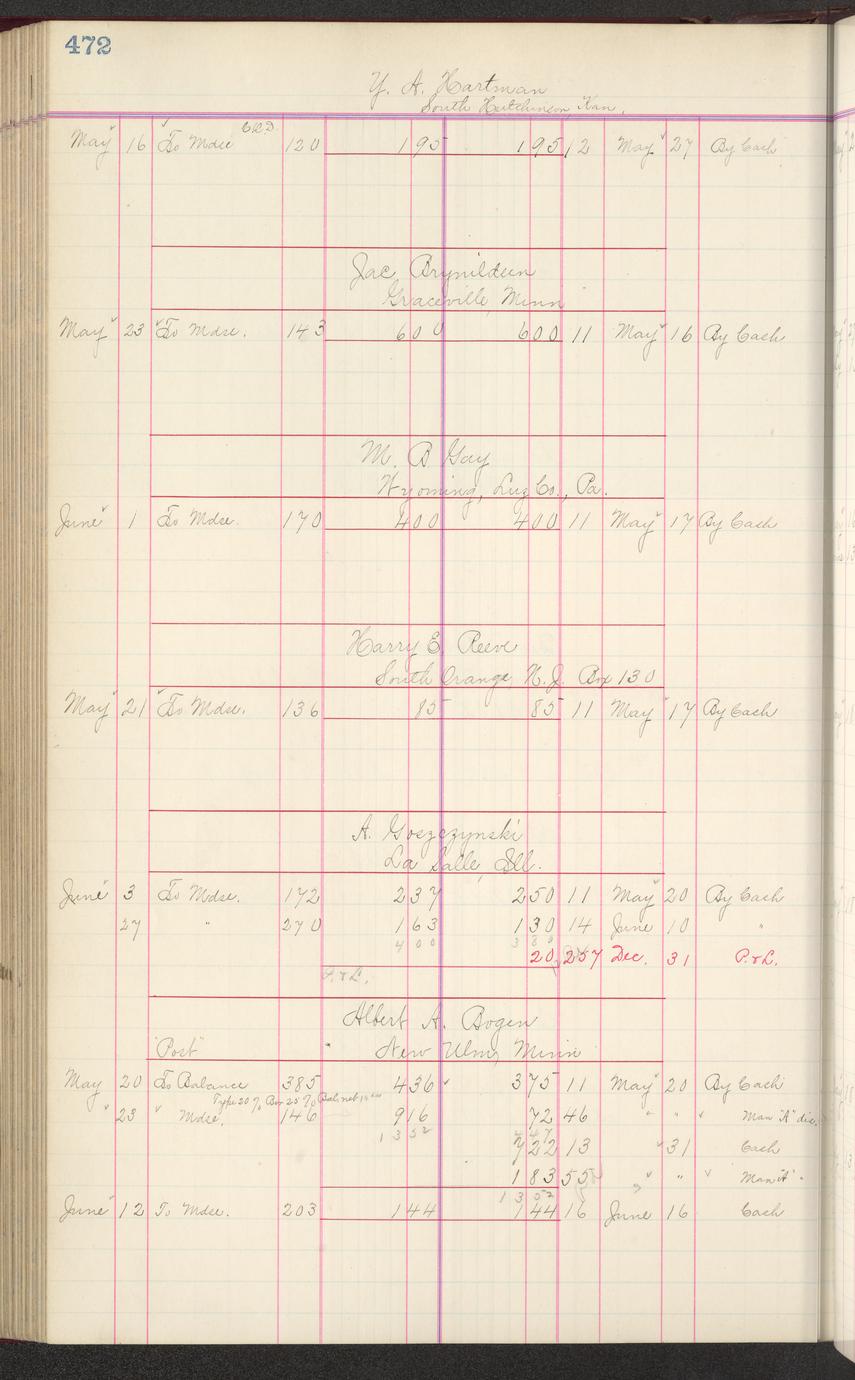 472
Y. A. Hartman
South Hutchinson, Kan.
May 16 To Mdse 120 195 195 12 May 27 By Cash
Jac, Brynildsen
Graceville, Minn
May 23 To Mdse. 143 600 600 11 May 16 By Cash
M. B Gay
Wyoming, Luz Co., Pa.
June 1 To Mdse. 170 400 400 11 May 17 By Cash
Harry E. Reeve
South Orange, N.J. Box 130
May 21 To Mdse. 136 85 85 11 May 17 By Cash
A. Goszczynski
La Salle, Ill.
June 3 To Mdse. 172 237 250 11 May 20 By Cash
27 " 270 163 130 14 June 10 "
400 380
20 257 Dec. 31 P. & L.
P. & L.
Albert A. Bogen
"Post" New Ulm, Minn
May 20 To Balance 385 436 375 11 May 20 By Cash
Type 20% Box 25% Bal. net
" 23 " Mdse. 146 916 72 46 " " Man "A" dis.
1352 447
722 13 " 31 Cash
183 55 " " Man "A" "
1352
June 12 To Mdse. 203 144 144 16 June 16 Cash